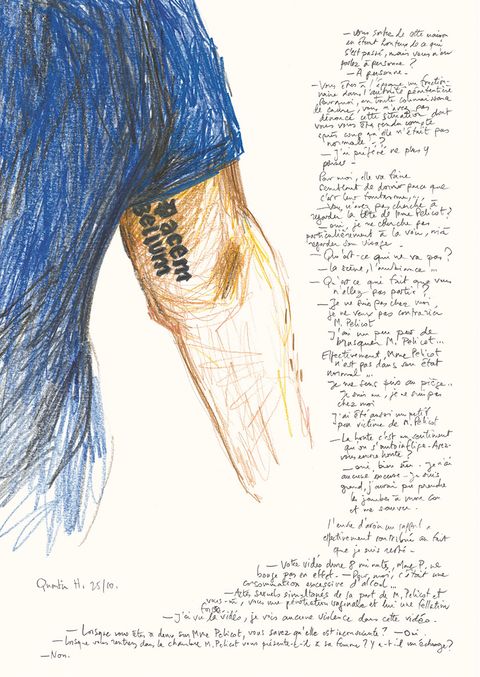 Pacem
Bellum
— Vous sortez de cette maison
en étant honteux de ce qui
s'est passé, mais vous n'en
parlez à personne ?
— A personne.
— Vous êtes à l'époque un fonction-
naire dans l'autorité pénitentiaire
Pourquoi, en toute connaissance
de cause, vous n'avez pas
dénoncé cette situation dont
vous vous êtes rendu compte
après coup qu'elle n'était pas
normale ?
— J'ai préféré ne plus y
penser —
Pour moi, elle va faire
semblant de dormir parce que
c'est leur fantasme...
— Vous n'avez pas cherché à
regarder la tête de Mme Pelicot ?
— Non, je ne cherche pas
particulièrement à la voir, ni à
regarder son visage —
— Qu'est-ce qui ne va pas ?
— La scène, l'ambiance ...
— Qu'est ce qui fait que vous
n'allez pas partir ?
— Je ne suis pas chez moi,
je ne veux pas contrarier
M. Pelicot
J'ai un peu peur de
brusquer M. Pelicot...
Effectivement, Mme Pelicot
n'est pas dans son état
normal ...
Je me sens pris au piège...
Je suis nu, je ne suis pas
chez moi
J'ai été aussi un petit
peu victime de M. Pelicot
— La honte c'est un sentiment
qu'on s'autoinflige. Avez-
vous encore honte ?
— Oui, bien sûr. Je n'ai
aucune excuse. Je suis
grand, j'aurai pu prendre
les jambes à mon cou
et me sauver.
L'envie d'avoir un
effectivement contribué au fait
que je suis resté —
— Votre vidéo dure 8 minutes, Mme P. ne
bouge pas en effet. — Pour moi, c'était une
consommation excessive d'alcool ...
— Actes sexuels simultanés de la part de M. Pelicot et
vous-, vous une pénétration vaginale et lui une fellation
forcée.
— J'ai vu la vidéo, je vois aucune violence dans cette vidéo.
— Lorsque vous êtes à deux sur Mme Pelicot, vous savez qu'elle est inconsciente ? — Oui.
— Lorsque vous rentrez dans la chambre M. Pelicot vous présente-t-il à sa femme ? Y a-t-il un échange ?
— Non.
Quentin H. 25/10.